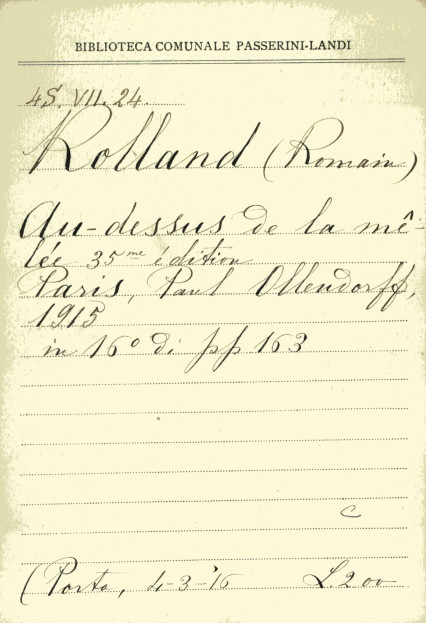 BIBLIOTECA COMUNALE PASSERINI-LANDI
4S. VII. 24.
Rolland (Romain)
Au-dessus de la mê-
lée 35me édition
Paris, Paul Ollendorff,
1915
in 16º di pp 163
C
(Porta, 4-3-'16 L. 2 00